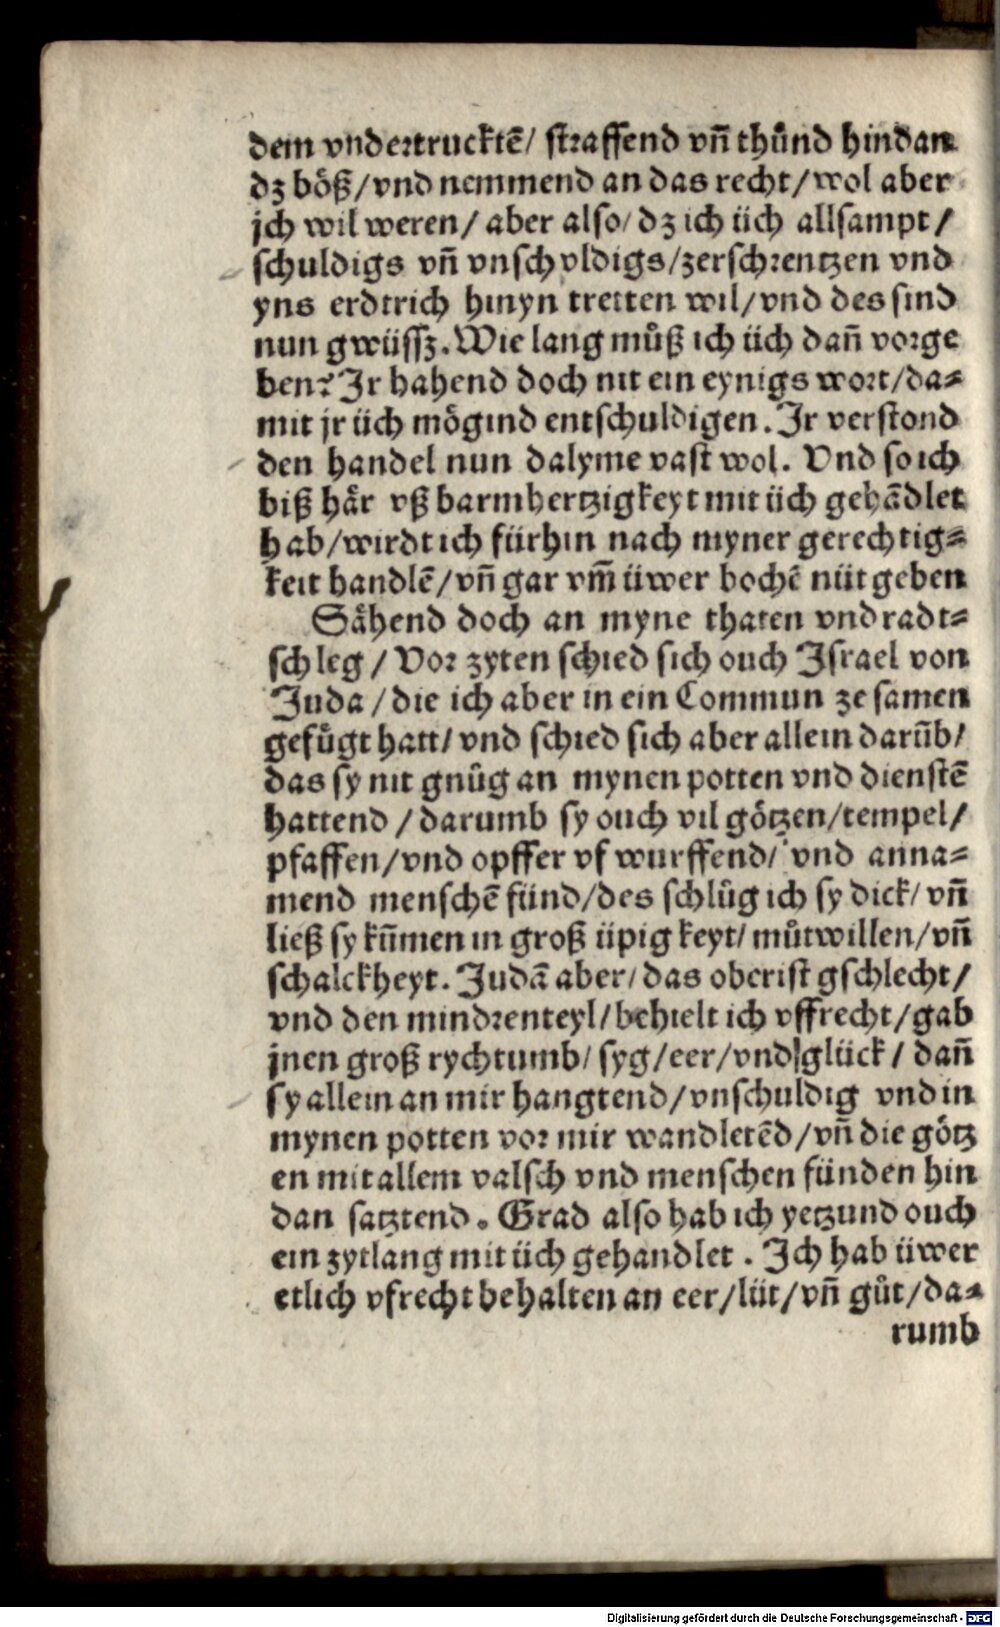 dem vndertrucktē/ straffend vn̄ thůnd hindan
dz bo̊ß/vnd nemmend an das recht/wol aber
jch wil weren/ aber also/ dz ich üch allsampt/
schuldigs vn̄ vnschvldigs/zerschrentzen vnd
yns erdtrich hinyn tretten wil/vnd des sind
nun gwüssz. Wie lang můß ich üch dan̄ vorge
ben? Jr hahend doch nit ein eynigs wort/da⸗
mit jr üch mögind entschuldigen. Jr verstond
den handel nun dalyme vast wol. Vnd so ich
biß här vß barmhertzigkeyt mit üch gehādlet
hab/wirdt ich fürhin nach myner gerechtig⸗
keit handlē/vn̄ gar vm̄ üwer bochē nüt geben
Sähend doch an myne thaten vnd radt⸗
schleg / Vor zyten schied sich ouch Jsrael von
Juda /die ich aber in ein Commun ze samen
gefůgt hatt/ vnd schied sich aber allein darūb/
das sy nit gnůg an mynen potten vnd dienstē
hattend /darumb sy ouch vil götzen/tempel/
pfaffen/vnd opffer vf wurffend/ vnd anna⸗
mend menschē fünd/des schlůg ich sy dick/ vn̄
ließ sy kūmen in groß üpig keyt/ můtwillen/vn̄
schalckheyt. Judā aber/ das oberist gschlecht/
vnd den mindrenteyl/behielt ich vffrecht/gab
jnen groß rychtumb/ syg/eer/vnd glück/ dan̄
sy allein an mir hangtend/vnschuldig vnd in
mynen potten vor mir wandletēd/vn̄ die götz
en mit allem valsch vnd menschen fünden hin
dan satztend. Grad also hab ich yetzund ouch
ein zytlang mit üch gehandlet. Jch hab üwer
etlich vfrecht behalten an eer/lüt/vn̄ gůt/da⸗
rumb
Digitalisierung gefördert durch die Deutsche Forschungsgemeinschaft - DFG